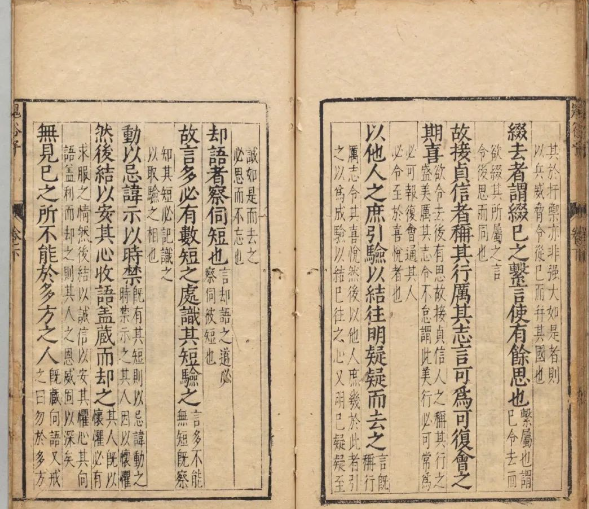 其於行禦亦非強大如是者則
以兵威脅令從已而并其國也
綴去者謂綴已之繫言使有餘思也
繫屬也謂
已令去而
欲綴其所屬之言
令後思而同也
故接貞信者稱其行厲其志言可為可復會之
期喜
欲令去後有思故接貞信人之稱其行之
盛美厲其志令不怠謂此美行必可常為
必可報復會通其人
必令至於喜悅者也
以他人之庶引驗以結往明疑疑而去之
言既
稱行
厲志令其喜悅然後以他人庶幾於此者引
之以為成驗以結已往之心又明已疑疑至
誠如是而去之
必思而不忘也
却語者察伺短也
言却語之道必
察伺彼短也
故言多必有數短之處識其短驗之
言多不能
無短既察
知其短必記識之
以取驗之相也
動以忌諱示以時禁
既有其短則以忌諱動之
時禁示之其人因以懷懼
然後結以安其心收語盖藏而却之
其人既以
懷懼必有
求服之情然後結以誠信以安其懼心其向
語盖利而却之則其人之恩威固以深矣
無見已之所不能於多方之人
既藏向語又戒
之曰勿於多方
鬼谷子
卷下